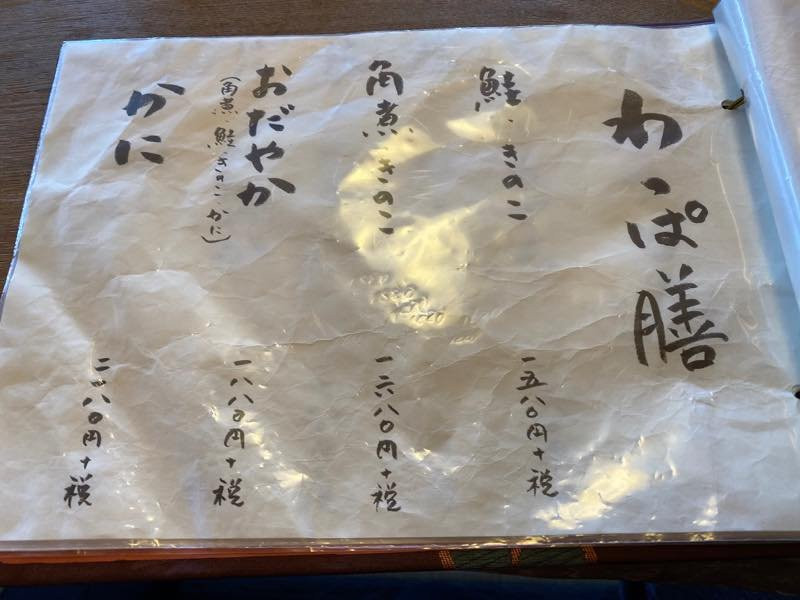 わっぱ膳
鮭、きのこ
一五八〇円+税
角煮、きのこ
一六八〇円+税
おだやか
(角煮、鮭、きのこ、かに)
一八八〇円+税
かに
二一八〇円+税